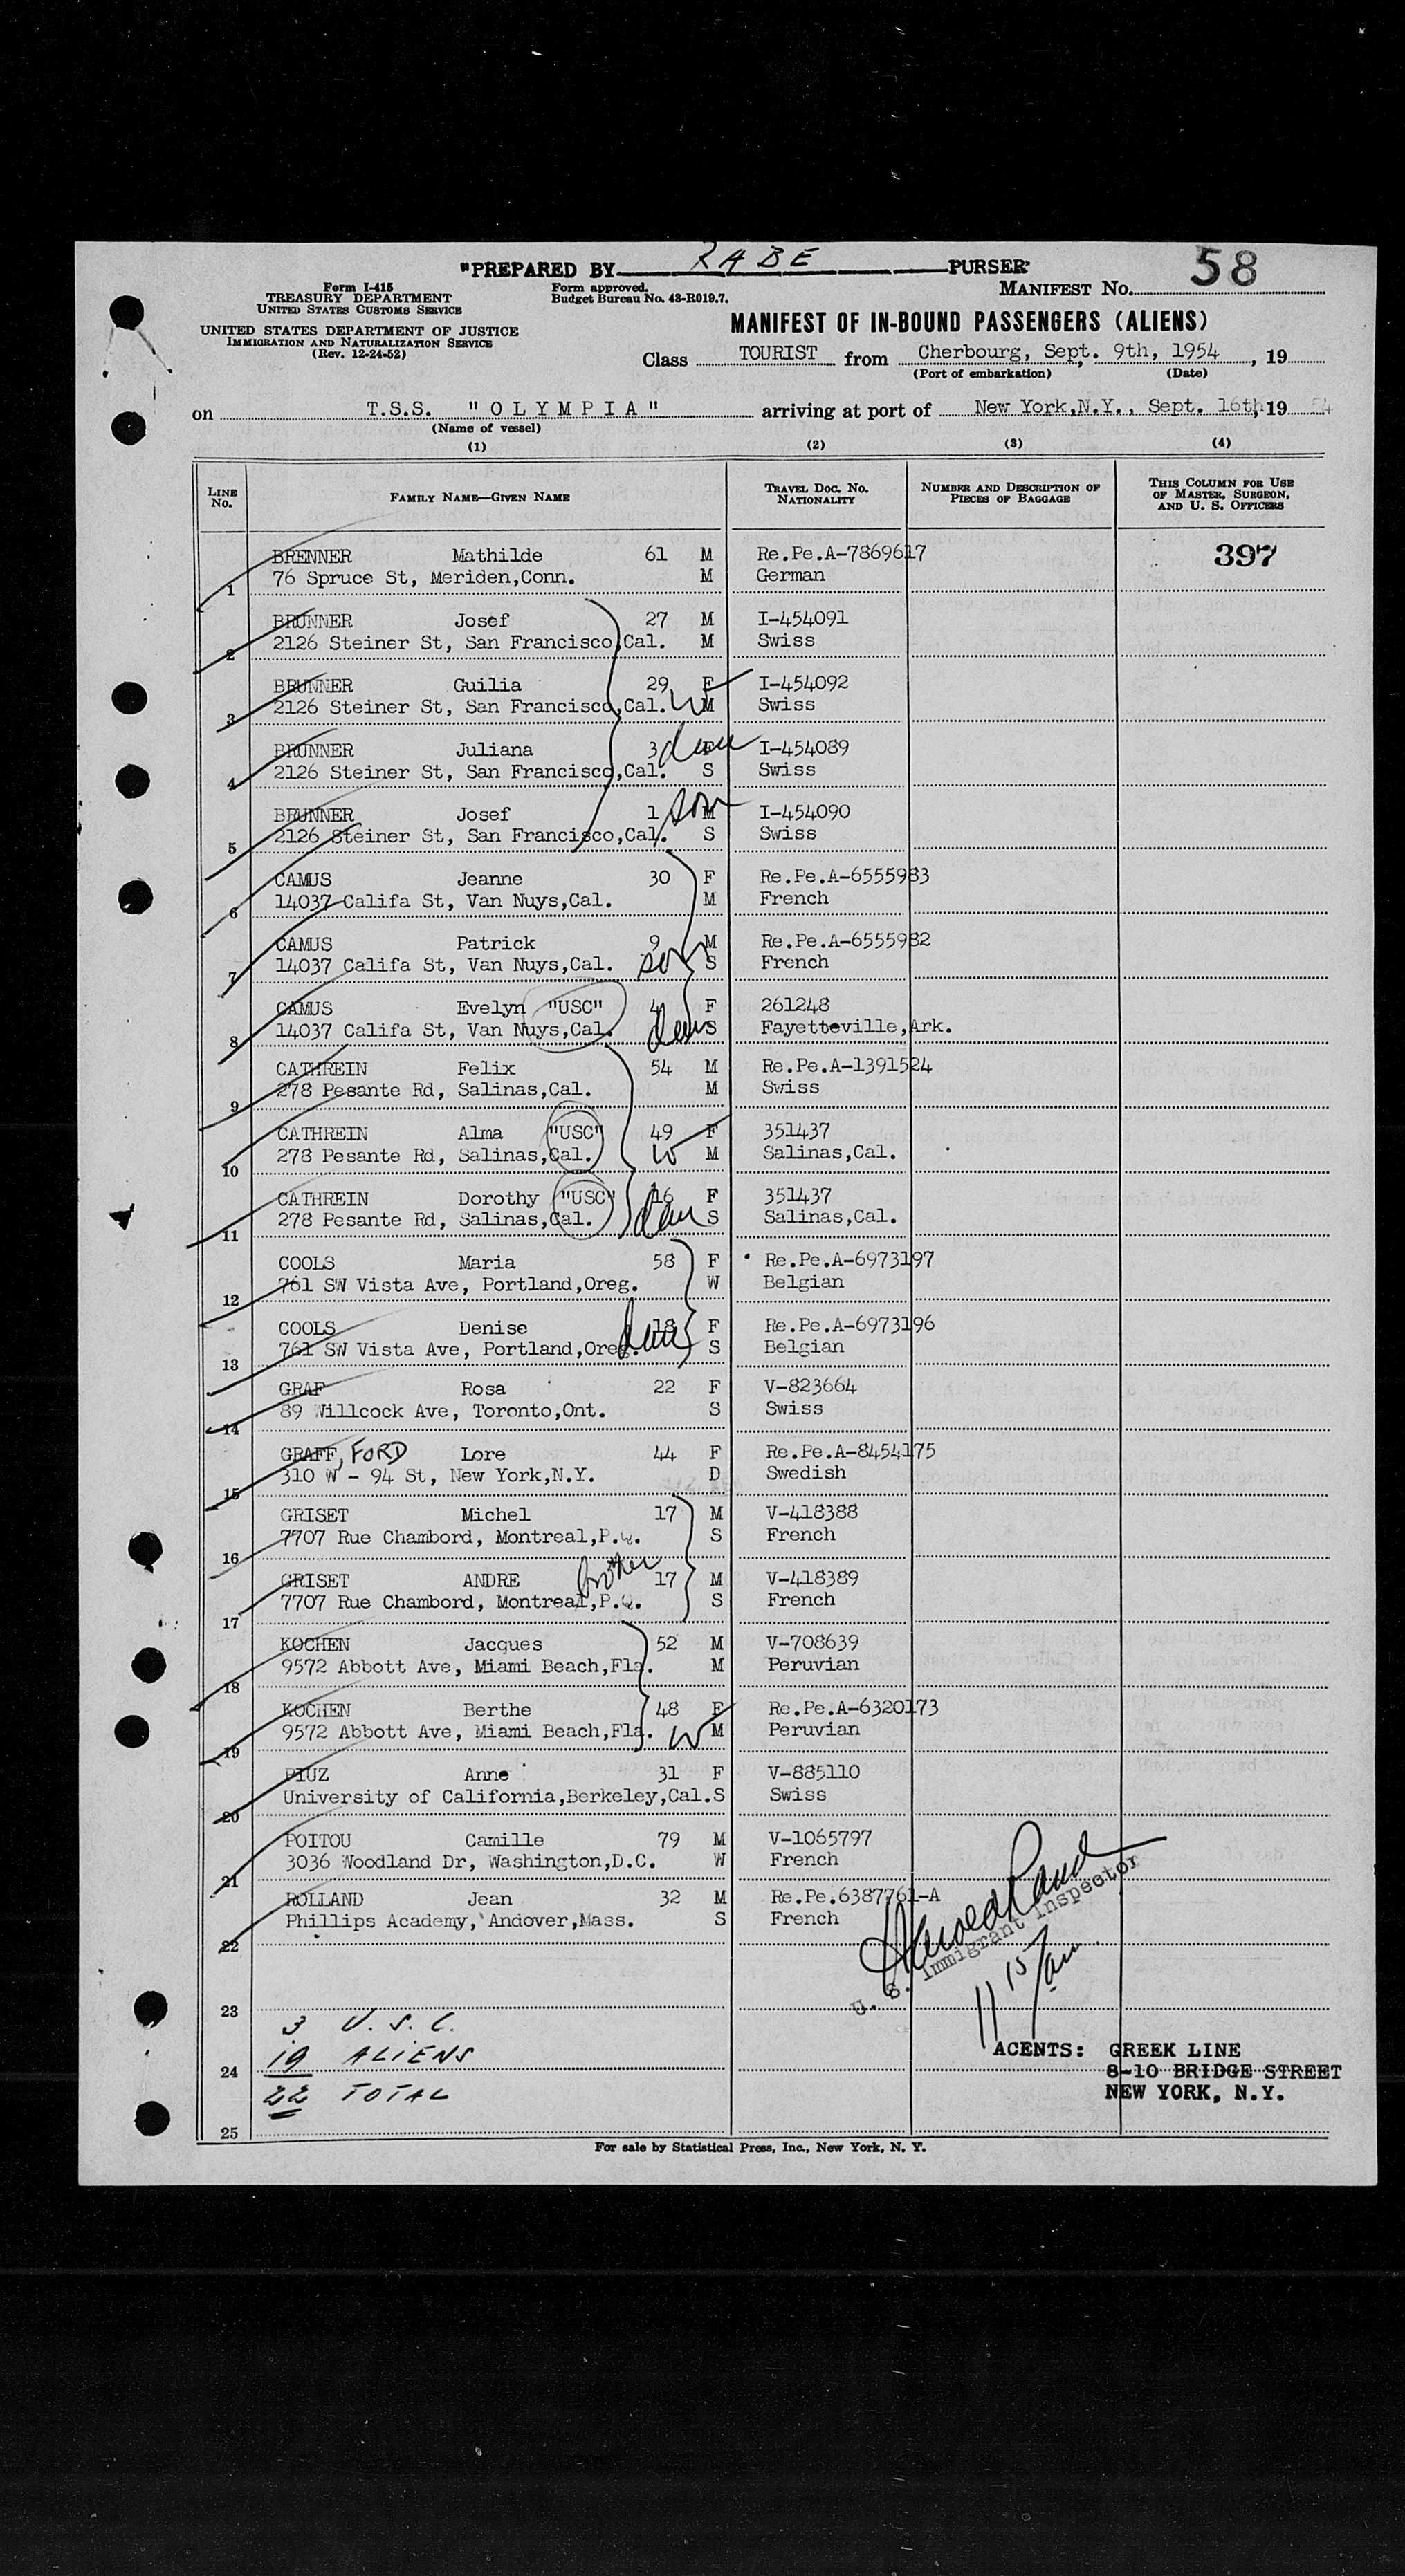 "PREPARED BY RABE PURSER"
58
Form I-415
TREASURY DEPARTMENT
UNITED STATES CUSTOMS SERVICE
Form approved.
Budget Bureau No. 43-R019.7.
MANIFEST No.
UNITED STATES DEPARTMENT OF JUSTICE
IMMIGRATION AND NATURALIZATION SERVICE
(Rev. 12-24-52)
MANIFEST OF IN-BOUND PASSENGERS (ALIENS)
Class TOURIST from Cherbourg, Sept. 9th, 1954, 19
(Port of embarkation) (Date)
on T.S.S. "OLYMPIA" arriving at port of New York,N.Y., Sept. 16th, 19 54
(Name of vessel)
(1) (2) (3) (4)
LINE No. FAMILY NAME—GIVEN NAME TRAVEL DOC. NO. NATIONALITY NUMBER AND DESCRIPTION OF PIECES OF BAGGAGE THIS COLUMN FOR USE OF MASTER, SURGEON, AND U. S. OFFICERS
BRENNER Mathilde 61 M Re.Pe.A-7869617 397
1 76 Spruce St, Meriden,Conn. M German
BRUNNER Josef 27 M I-454091
2 2126 Steiner St, San Francisco,Cal. M Swiss
BRUNNER Guilia 29 F I-454092
3 2126 Steiner St, San Francisco,Cal. W M Swiss
BRUNNER Juliana 3 dau I-454089
4 2126 Steiner St, San Francisco,Cal. S Swiss
BRUNNER Josef 1 son M I-454090
5 2126 Steiner St, San Francisco,Cal. S Swiss
CAMUS Jeanne 30 F Re.Pe.A-6555983
6 14037 Califa St, Van Nuys,Cal. M French
CAMUS Patrick 9 M Re.Pe.A-6555982
7 14037 Califa St, Van Nuys,Cal. son S French
CAMUS Evelyn "USC" 4 F 261248
8 14037 Califa St, Van Nuys,Cal. dau S Fayetteville,Ark.
CATHREIN Felix 54 M Re.Pe.A-1391524
9 278 Pesante Rd, Salinas,Cal. M Swiss
CATHREIN Alma "USC" 49 F 351437
10 278 Pesante Rd, Salinas,Cal. W M Salinas,Cal.
CATHREIN Dorothy "USC" 16 F 351437
11 278 Pesante Rd, Salinas,Cal. dau S Salinas,Cal.
COOLS Maria 58 F Re.Pe.A-6973197
12 761 SW Vista Ave, Portland,Oreg. W Belgian
COOLS Denise 18 F Re.Pe.A-6973196
13 761 SW Vista Ave, Portland,Oreg. dau S Belgian
GRAF Rosa 22 F V-823664
14 89 Willcock Ave, Toronto,Ont. S Swiss
GRAFF, FORD Lore 44 F Re.Pe.A-8454175
15 310 W - 94 St, New York,N.Y. D Swedish
GRISET Michel 17 M V-418388
16 7707 Rue Chambord, Montreal,P.Q. S French
GRISET ANDRE brother 17 M V-418389
17 7707 Rue Chambord, Montreal,P.Q. S French
KOCHEN Jacques 52 M V-708639
18 9572 Abbott Ave, Miami Beach,Fla. M Peruvian
KOCHEN Berthe 48 F Re.Pe.A-6320173
19 9572 Abbott Ave, Miami Beach,Fla. W M Peruvian
PIUZ Anne 31 F V-885110
20 University of California,Berkeley,Cal. S Swiss
POITOU Camille 79 M V-1065797
21 3036 Woodland Dr, Washington,D.C. W French
ROLLAND Jean 32 M Re.Pe.6387761-A
22 Phillips Academy, Andover,Mass. S French
U. S. Immigrant Inspector
11 15/am
23 3 U.S.C.
24 19 ALIENS
22 TOTAL
25
AGENTS: GREEK LINE
8-10 BRIDGE STREET
NEW YORK, N.Y.
For sale by Statistical Press, Inc., New York, N. Y.